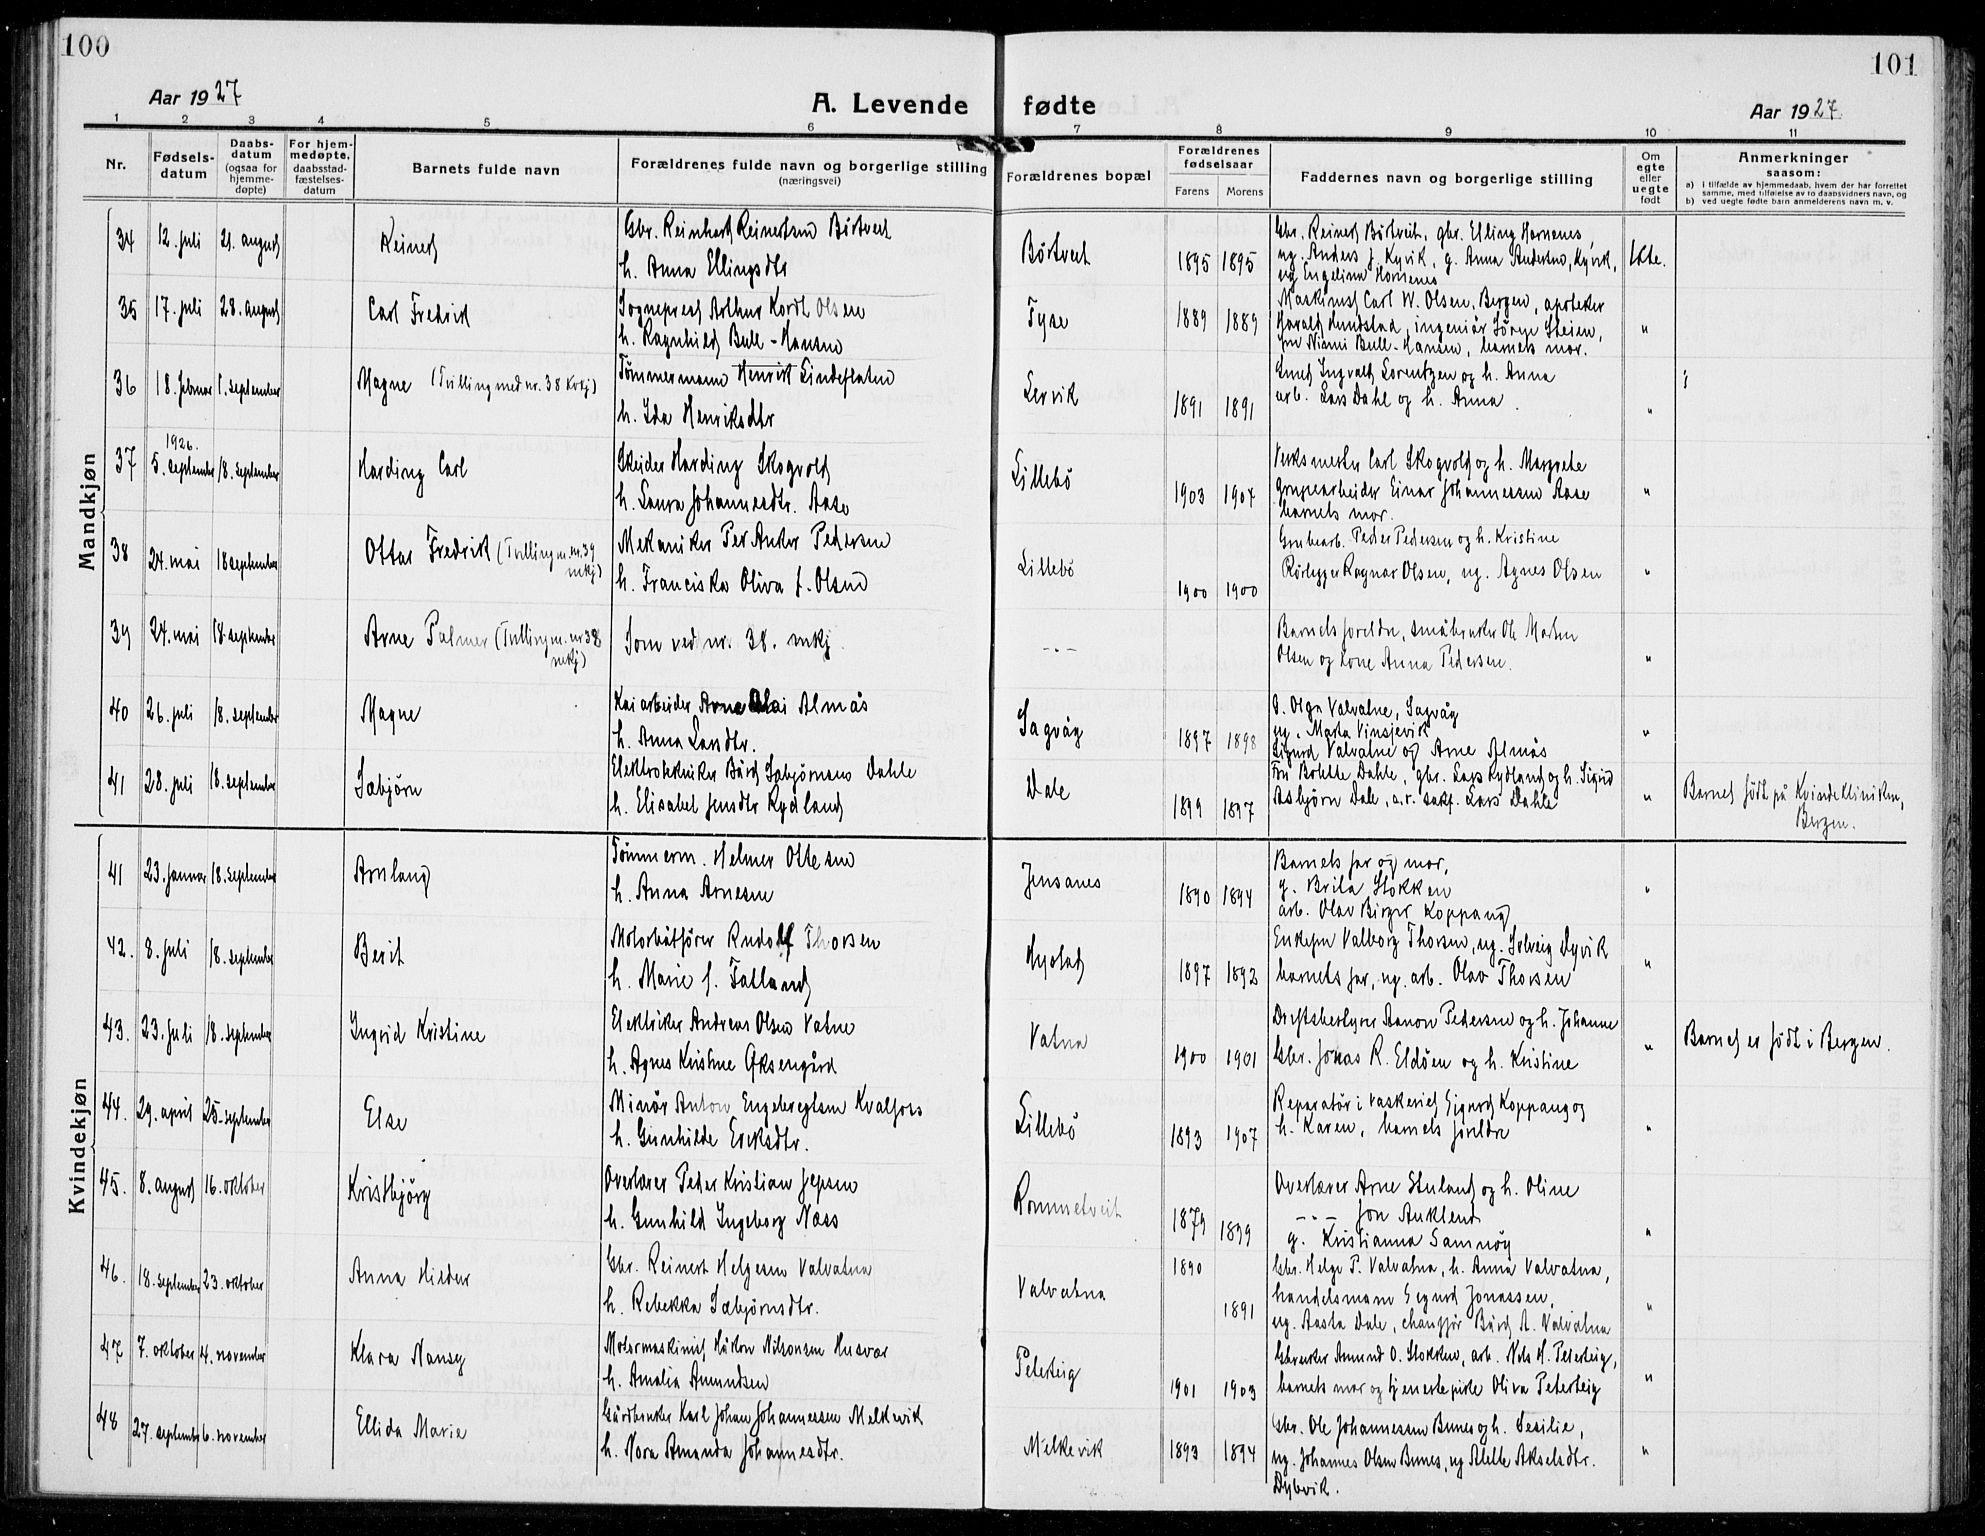 100
101
Aar 1927
A. Levende fødte
Aar 1927.
1 2 3 4 5 6 7 8 9 10 11
Nr.
Fødsels-
datum
Daabs-
datum
(ogsaa for
hjemme-
døpte)
For hjem-
medøpte,
daabsstad-
fæstelses-
datum
Barnets fulde navn
Forældrenes fulde navn og borgerlige stilling
(næringsvei)
Forældrenes bopæl
Forældrenes
fødselsaar
Farens Morens
Faddernes navn og borgerlige stilling
Om
egte
eller
uegte
født
Anmerkninger
saasom:
a) i tilfælde av hjemmedaab, hvem der har forrettet
samme, med tilføielse av to daabsvidners navn, og
b) ved uegte fødte barn anmelderens navn m. v.
Mandkjøn
34 12. juli 21. august Reinert
Gbr. Reinhart Reinertsen Börtveit
h. Anna Ellingsdtr
Börtveit 1895 1895
Gbr. Reinert Börtveit, gbr. Elling Hornenes,
ug. Anders J. Kyvik, g. Anna Andersen, Kyvik,
ug Engeline Hornenes
Ekte.
35 17. juli 28. august Carl Fredrik
Sogneprest Arthur Kordt Olsen
h. Ragnhild Bull-Hansen
Tyse 1889 1889
Maskinist Carl W. Olsen, Bergen, apoteker
Harald Hundstad, ingeniör Sören Steien,
fru Mimi Bull-Hansen, barnets mor.
"
36 18. februar 1. september Magne (Tvilling med nr. 38 kvkj)
Tömmermann Henrik Lindeflaten
h. Ida Henriksdtr
Lervik 1891 1891
Ingvald Lorentzen og h. Anna
arb. Lars Dahl og h. Anna.
"
37 1926.
5. september 18. september Harding Carl
Skeider Harding Skogvold
h. Laura Johannesdtr. Aase
Lillebö 1903 1904
Verksmester Carl Skogvold og h. Margrete
Grubearbeider Einar Johannessen Aase
barnets mor.
"
38 24. mai 18 september Ottar Fredrik (Tvilling m. nr. 39
mkj)
Mekaniker Per Anker Pedersen
h. Franciska Oliva f. Olsen
Lillebö 1900 1900
Grubearb. Peder Pedersen og h. Kristine
Rörlegger Ragnar Olsen, ug. Agnes Olsen
"
39 24. mai 18. september Arne Palmer (Tvilling m. nr 38
mkj)
Som ved nr. 38. mkj.
- . -
Barnets foreldre, småbruker Ole Martin
Olsen og kone Anna Pedersen.
"
40 26. juli 18. september Magne
Kaiarbeider Arne Olai Almås
h. Anna Larsdtr.
Sagvåg 1897 1898
g. Olga Valvatne, Sagvåg
ug. Marta Vinsjevik
Sigurd Valvatne og Arne Almås
"
41 28. juli 18. september Sæbjörn
Elektrotekniker Bård Sæbjörnsen Dahle
h. Elisabet Jensdtr Rydland
Dale 1899 1897
Fru Bolette Dahle, gbr. Lars Rydland og h. Sigrid
Asbjörn Dale, o.r. sakf. Lars Dahle
"
Barnet födt på Kvindeklinikken,
Bergen.
Kvindekjøn
41 23. januar 18. september Arnlaug
Tömmerm. Helmer Ottesen
h. Anna Arnesen
Jensanes 1890 1894
Barnets far og mor,
g. Brita Stokken
arb. Olav Birger Koppang
"
42. 8. juli 18. september Berit
Motorbåtförer Rudolf Thorsen
h. Marie f. Tatland
Hystad 1897 1892
Enkefru Valborg Thorsen, ug. Solveig Dyvik
barnets far, ug. arb. Olav Thorsen
"
43. 23. juli 18. september Ingrid Kristine
Elektriker Andreas Olsen Vatne
h. Agnes Kristine Oksengård
Vatna 1900 1901
Driftsbestyrer Aanon Pedersen og h. Johanne
Gbr. Jokas R. Eldöen og h. Kristine
"
Barnet er födt i Bergen.
44. 29. april 25. september Else
Minör Anton Engebregtsen Kvalfors
h. Gunhilde Eriksdtr.
Lillebö 1893 1907
Reparatör i vaskeriet Sigurd Koppang og
h. Karen, barnets foreldre
"
45. 8. august 16. oktober Kristbjörg
Overlærer Peder Kristian Jepsen
h. Gunhild Ingeborg Næss
Rommetveit 1879 1899
Overlærer Arne Stuland og h. Oline
- . - Jon Aukland
g. Kristianna Samnöy
"
46. 18. september 23. oktober Anna Hildur
Gbr. Reinert Helgesen Valvatna
h. Rebekka Sæbjörnsdtr.
Valvatna 1890 1891
Gbr. Helge P. Valvatna, h. Anna Valvatna,
handelsmann Sigurd Jonassen,
ug. Aasta Dale, chaufför Bård A. Valvatna
"
47 7. oktober 4. november Klara Nansy
Motormaskinist Håkon Nilssonsen Husvær
h. Amalia Amundsen
Peterteig 1901 1903
Gbruker Amund O. Stokken, arb. Nils H. Peterteig,
barnets mor og tjenestepike Oliva Peterteig
"
48 27. september 6. november Ellida Marie
Gårdbruker Karl Johan Johannessen Melkevik
h. Nora Amanda Johannesdtr.
Melkevik 1893 1894
Gbr. Ole Johannessen Bunes og h. Cesilie,
ug. Johannes Olsen Bunes, ug Alette Akselsdtr.
Dybvik.
"